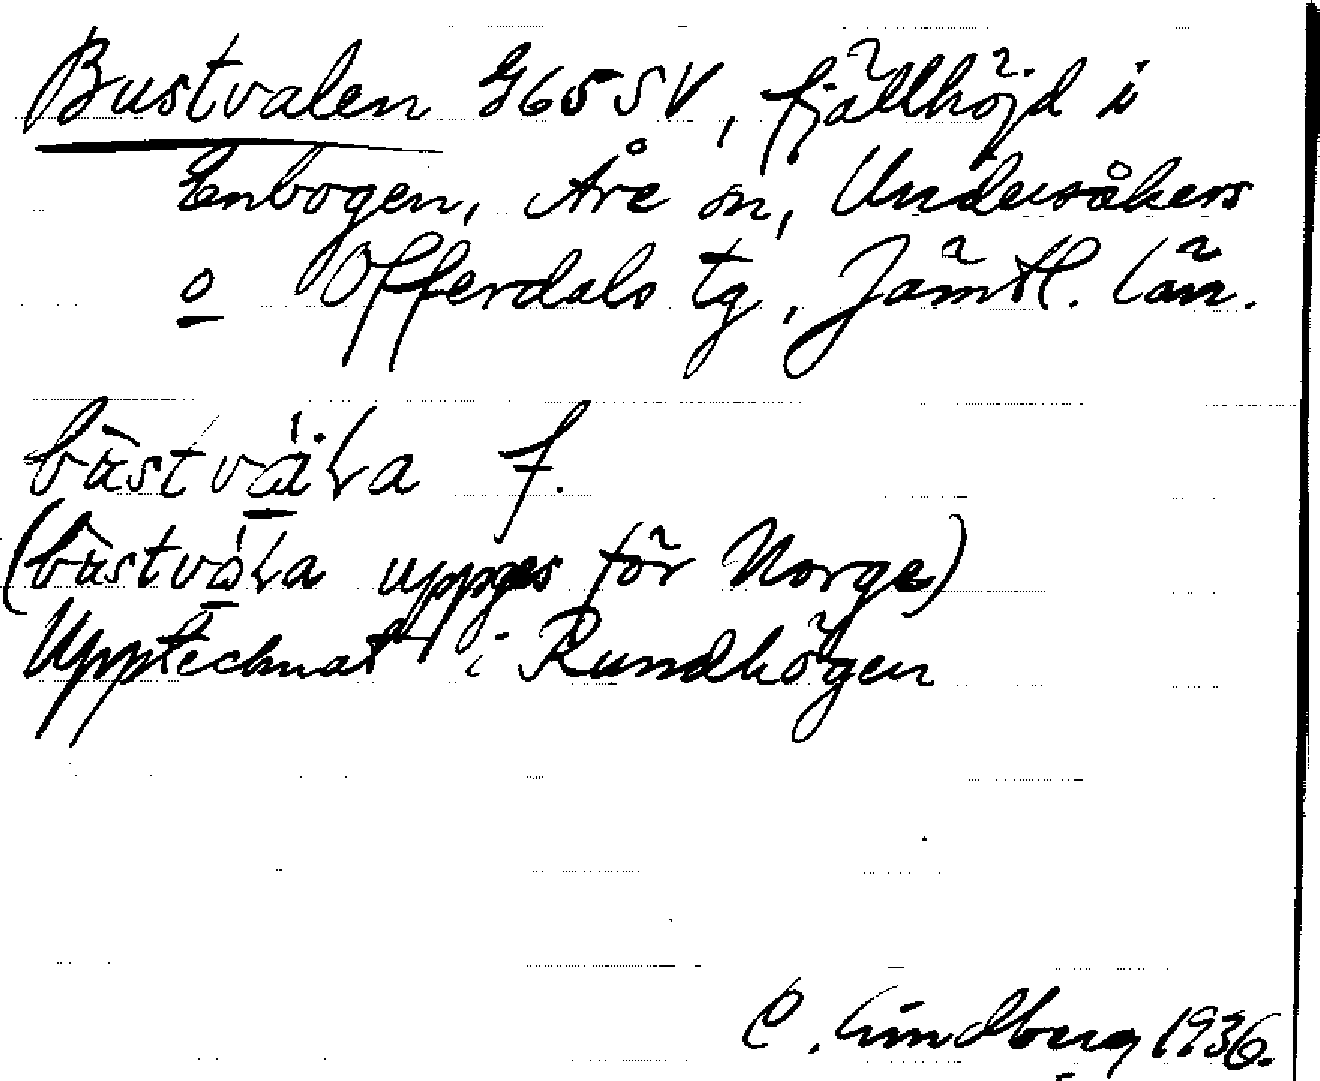 Bustvalen G65SV, fjällhöjd i
Enbogen, Åre sn, Undersåkers
o Offerdals tg, Jämtl. län.
f.
uppges för Norge)
Upptecknat i Rundhögen
C. Lindberg 1936.